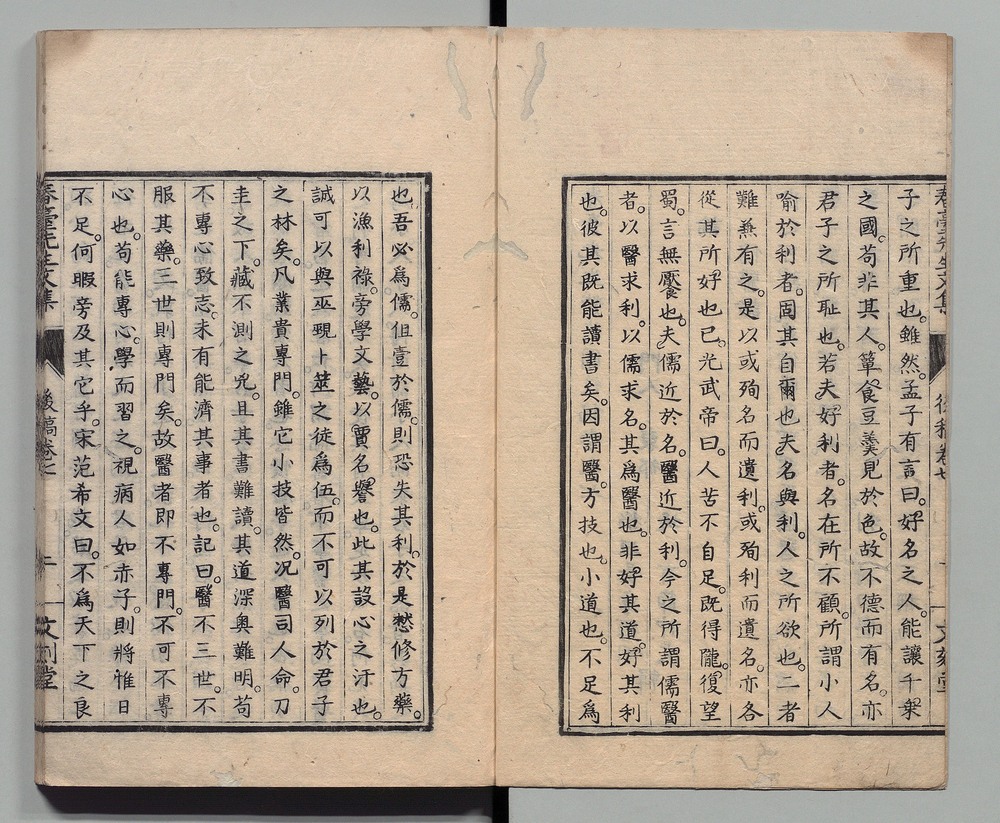 子之所重也。雖然。孟子有言曰。好名之人。能讓千乘
之國。苟非其人。簞食豆羹見於色。故不德而有名。亦
君子之所恥也。若夫好利者。名在所不顧。所謂小人
喻於利者。固其自爾也。夫名與利。人之所欲也。二者
難兼有之。是以或殉名而遺利。或殉利而遺名。亦各
從其所好也已。光武帝曰。人苦不自足。既得隴。復望
蜀。言無饜也。夫儒近於名。醫近於利。今之所謂儒醫
者。以醫求利。以儒求名。其為醫也。非好其道。好其利
也。彼其既能讀書矣。因謂醫。方技也。小道也。不足為
也。吾必為儒。但壹於儒。則恐失其利。於是憖修方藥。
以漁利祿。旁學文藝。以賈名譽也。此其設心之汙也。
誠可以與巫覡卜筮之徒為伍。而不可以列於君子
之林矣。凡業貴專門。雖它小技皆然。況醫司人命。刀
圭之下。藏不測之兇。且其書難讀。其道深奧難明。苟
不專心致志。未有能濟其事者也。記曰。醫不三世。不
服其藥。三世則專門矣。故醫者即不專門。不可不專
心也。苟能專心。學而習之。視病人如赤子。則將惟日
不足。何暇旁及其它乎。宋范希文曰。不為天下之良
春臺先生文集
後稿卷七